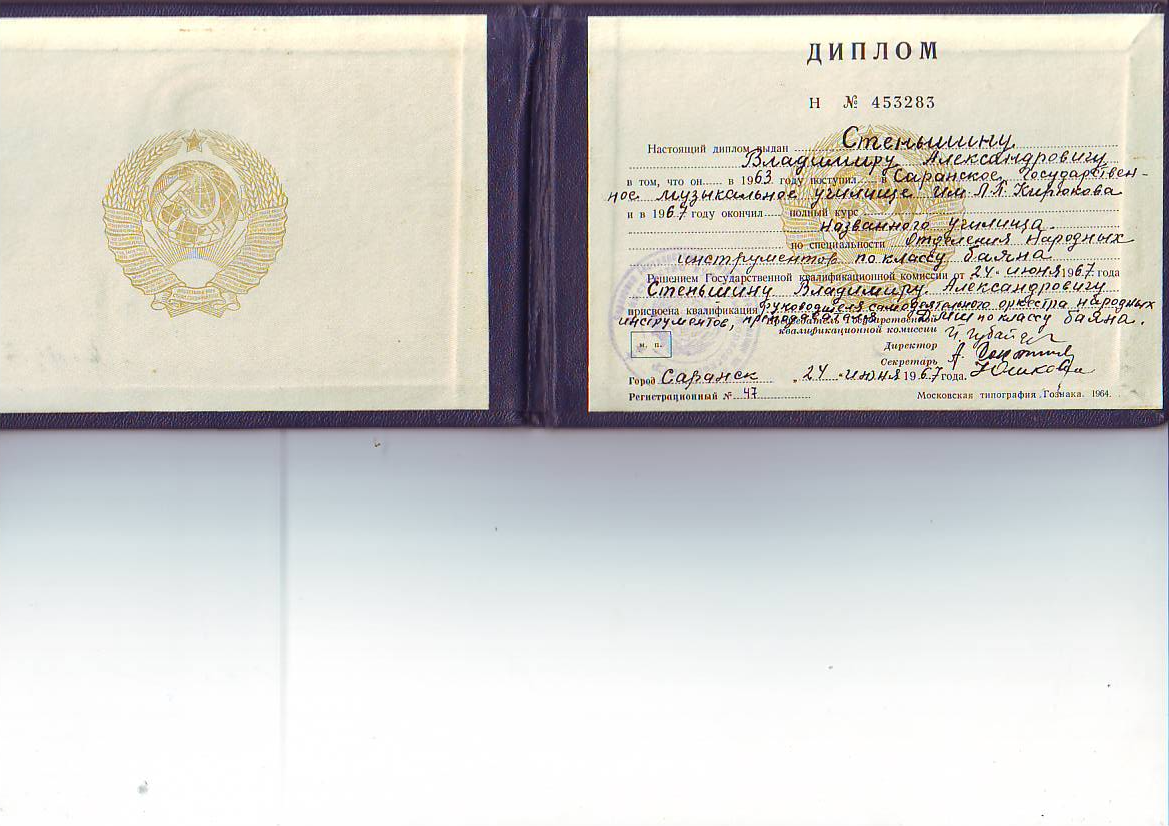 ДИПЛОМ
Н № 453283
Настоящий диплом выдан Стеньшину
Владимиру Александровичу
в том, что он в 1963 году поступил в Саранское государствен-
ное музыкальное училище им. Л.П. Кирюкова
и в 1967 году окончил полный курс
названного училища.
по специальности отделения народных
инструментов по классу баяна
Решением Государственной квалификационной комиссии от 24 июня 1967 года
Стеньшину Владимиру Александровичу
присвоена квалификация руководителя самодеятельного оркестра народных
инструментов, преподавателя ДМШ по классу баяна.
Председатель Государственной
квалификационной комиссии
Директор
Секретарь
м. п.
Город Саранск „24" июня 1967 года.
Регистрационный № 47
Московская типография Гознака. 1964.